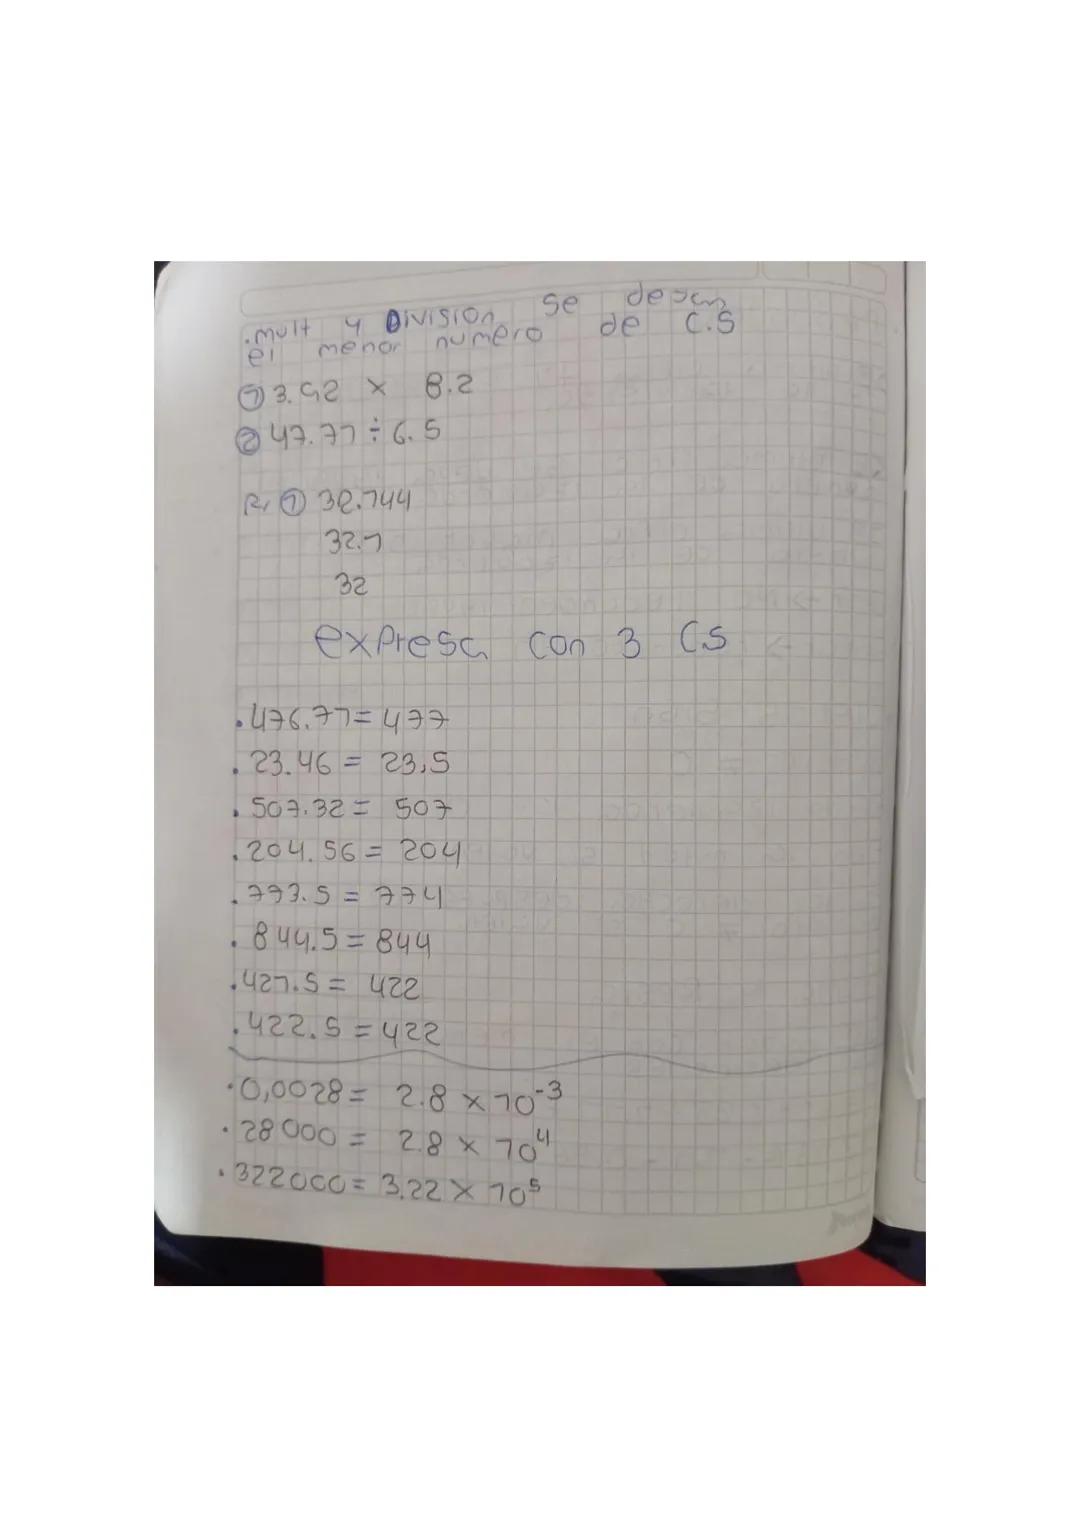 .mult y DIVISION se dejan
el menor numero de C.S
① 3.92 x 8.2
② 47.71 ÷ 6.5
R, ① 32.144
32.1
32
expresa con 3 C.S
.476.77= 477
. 23.46 = 23,5
. 507.32 = 507
.204.56 = 204
.773.5 = 774
. 844.5 = 844
.421.5 = 422
.422.5 = 422
.0,0028 = 2.8 x 10⁻³
. 28000 = 2.8 x 10⁴
. 322000 = 3.22 x 10⁵